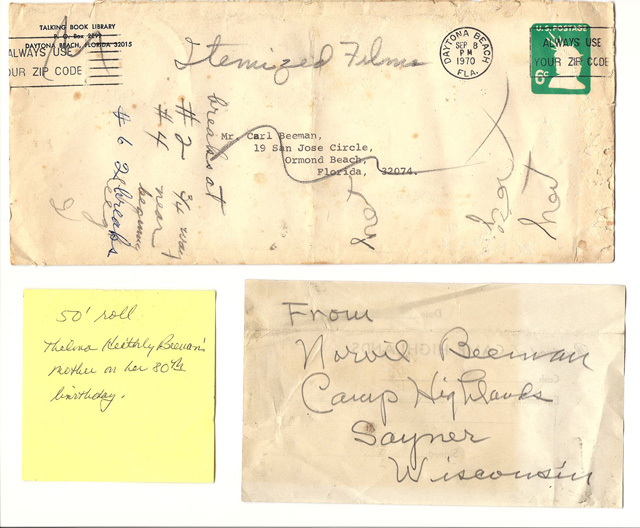 TALKING BOOK LIBRARY
P. O. Box 2299
DAYTONA BEACH, FLORIDA 32015
ALWAYS USE
YOUR ZIP CODE
DAYTONA BEACH
SEP 8
PM
1970
FLA.
U.S. POSTAGE
6¢
ALWAYS USE
YOUR ZIP CODE
Itemized Films
Mr. Carl Beeman,
19 San Jose Circle,
Ormond Beach,
Florida, 32074.
breaks at
#2 3/4 way
#4 near
#6 2 breaks
50' roll
Thelma Beeman's
mother on her 80th
birthday.
From
Norvil Beeman
Camp Highlands
Sayner
Wisconsin